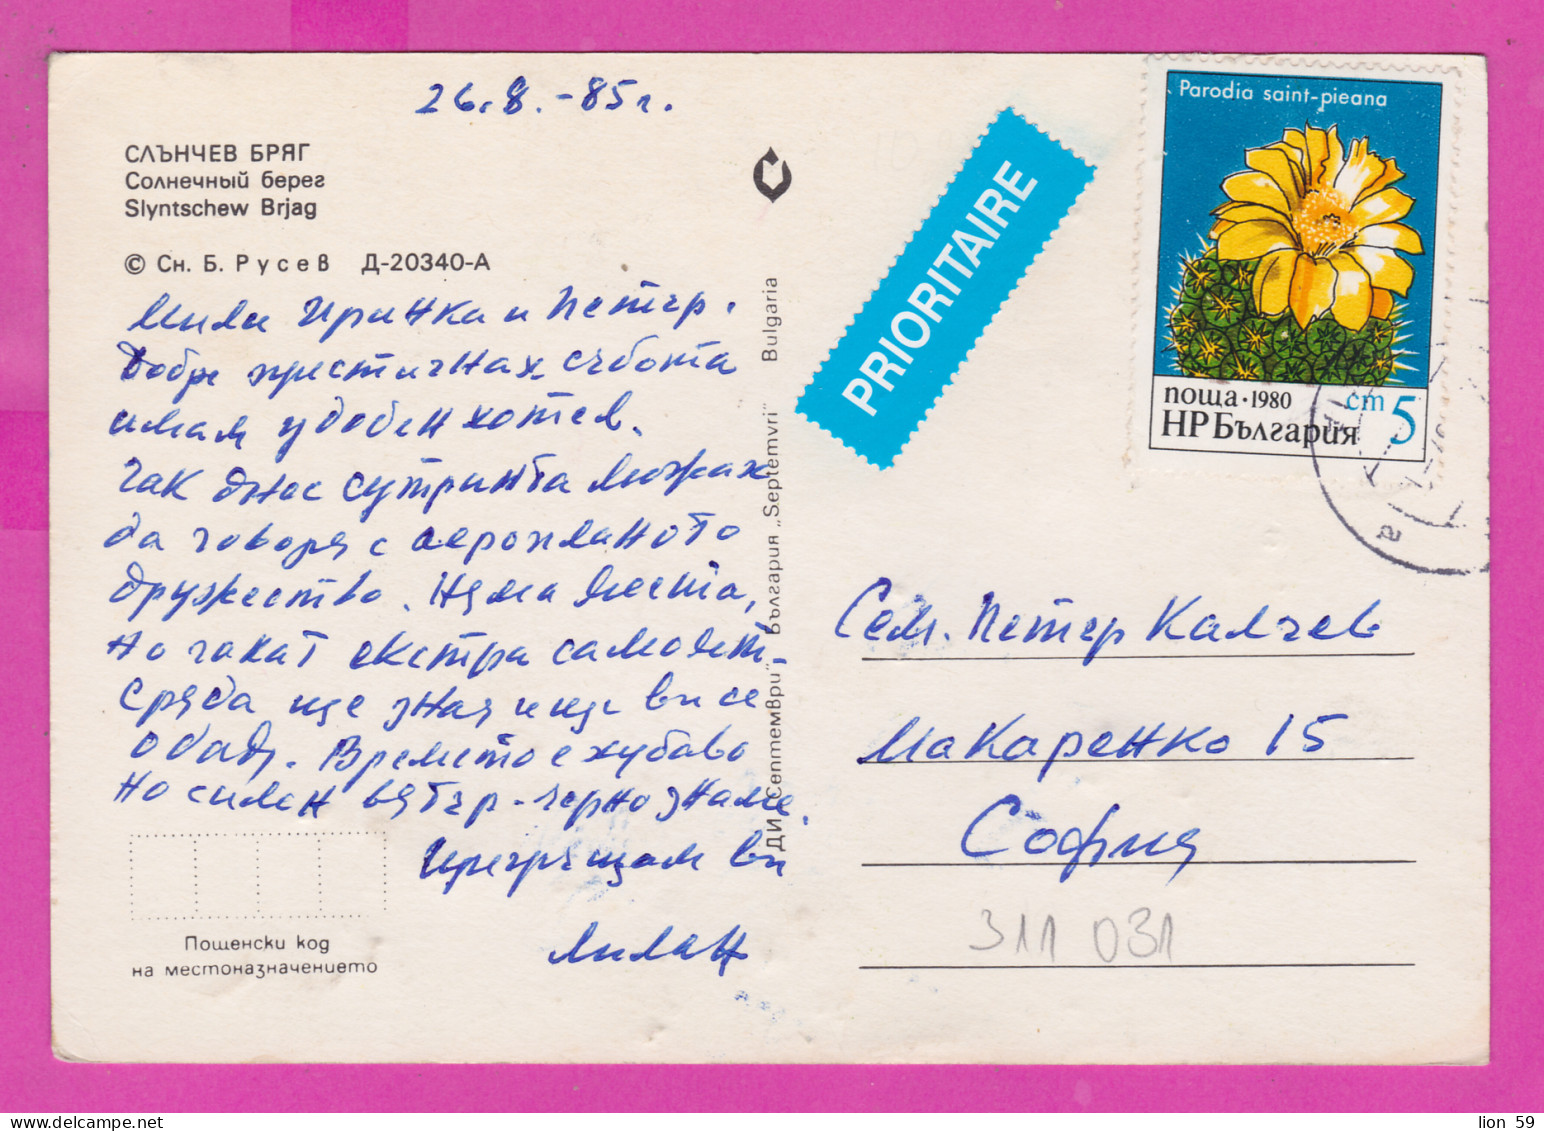 26.8.-85 г.
СЛЪНЧЕВ БРЯГ
Солнечный берег
Slyntschew Brjag
© Сн. Б. Русев Д-20340-А
Мили Иринка и Петър.
Добре пристигнах събота
имам удобен хотел.
Чак днес сутринта можах
да говоря с аеропланото
дружество. Няма места,
но чакат екстра самолет.
Сряда ще зная и ще ви се
обадя. Времето е хубаво
но силен вятър - черно знаме.
Прегръщам ви
Милан
Пощенски код
на местоназначението
ДИ „Септември" България „Septemvri" Bulgaria
PRIORITAIRE
Parodia saint-pieana
поща·1980 ст 5
НРБългария
Сем. Петър Калчев
Макаренко 15
София
311 031
lion 59